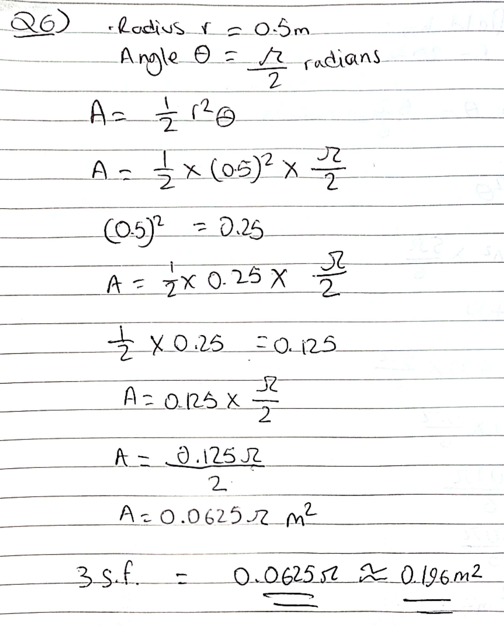 Q6) · Radius r = 0.5m
Angle θ = π/2 radians
A = 1/2 r²θ
A = 1/2 × (0.5)² × π/2
(0.5)² = 0.25
A = 1/2 × 0.25 × π/2
1/2 × 0.25 = 0.125
A = 0.125 × π/2
A = 0.125π/2
A = 0.0625π m²
3 s.f. = 0.0625π ≈ 0.196m²